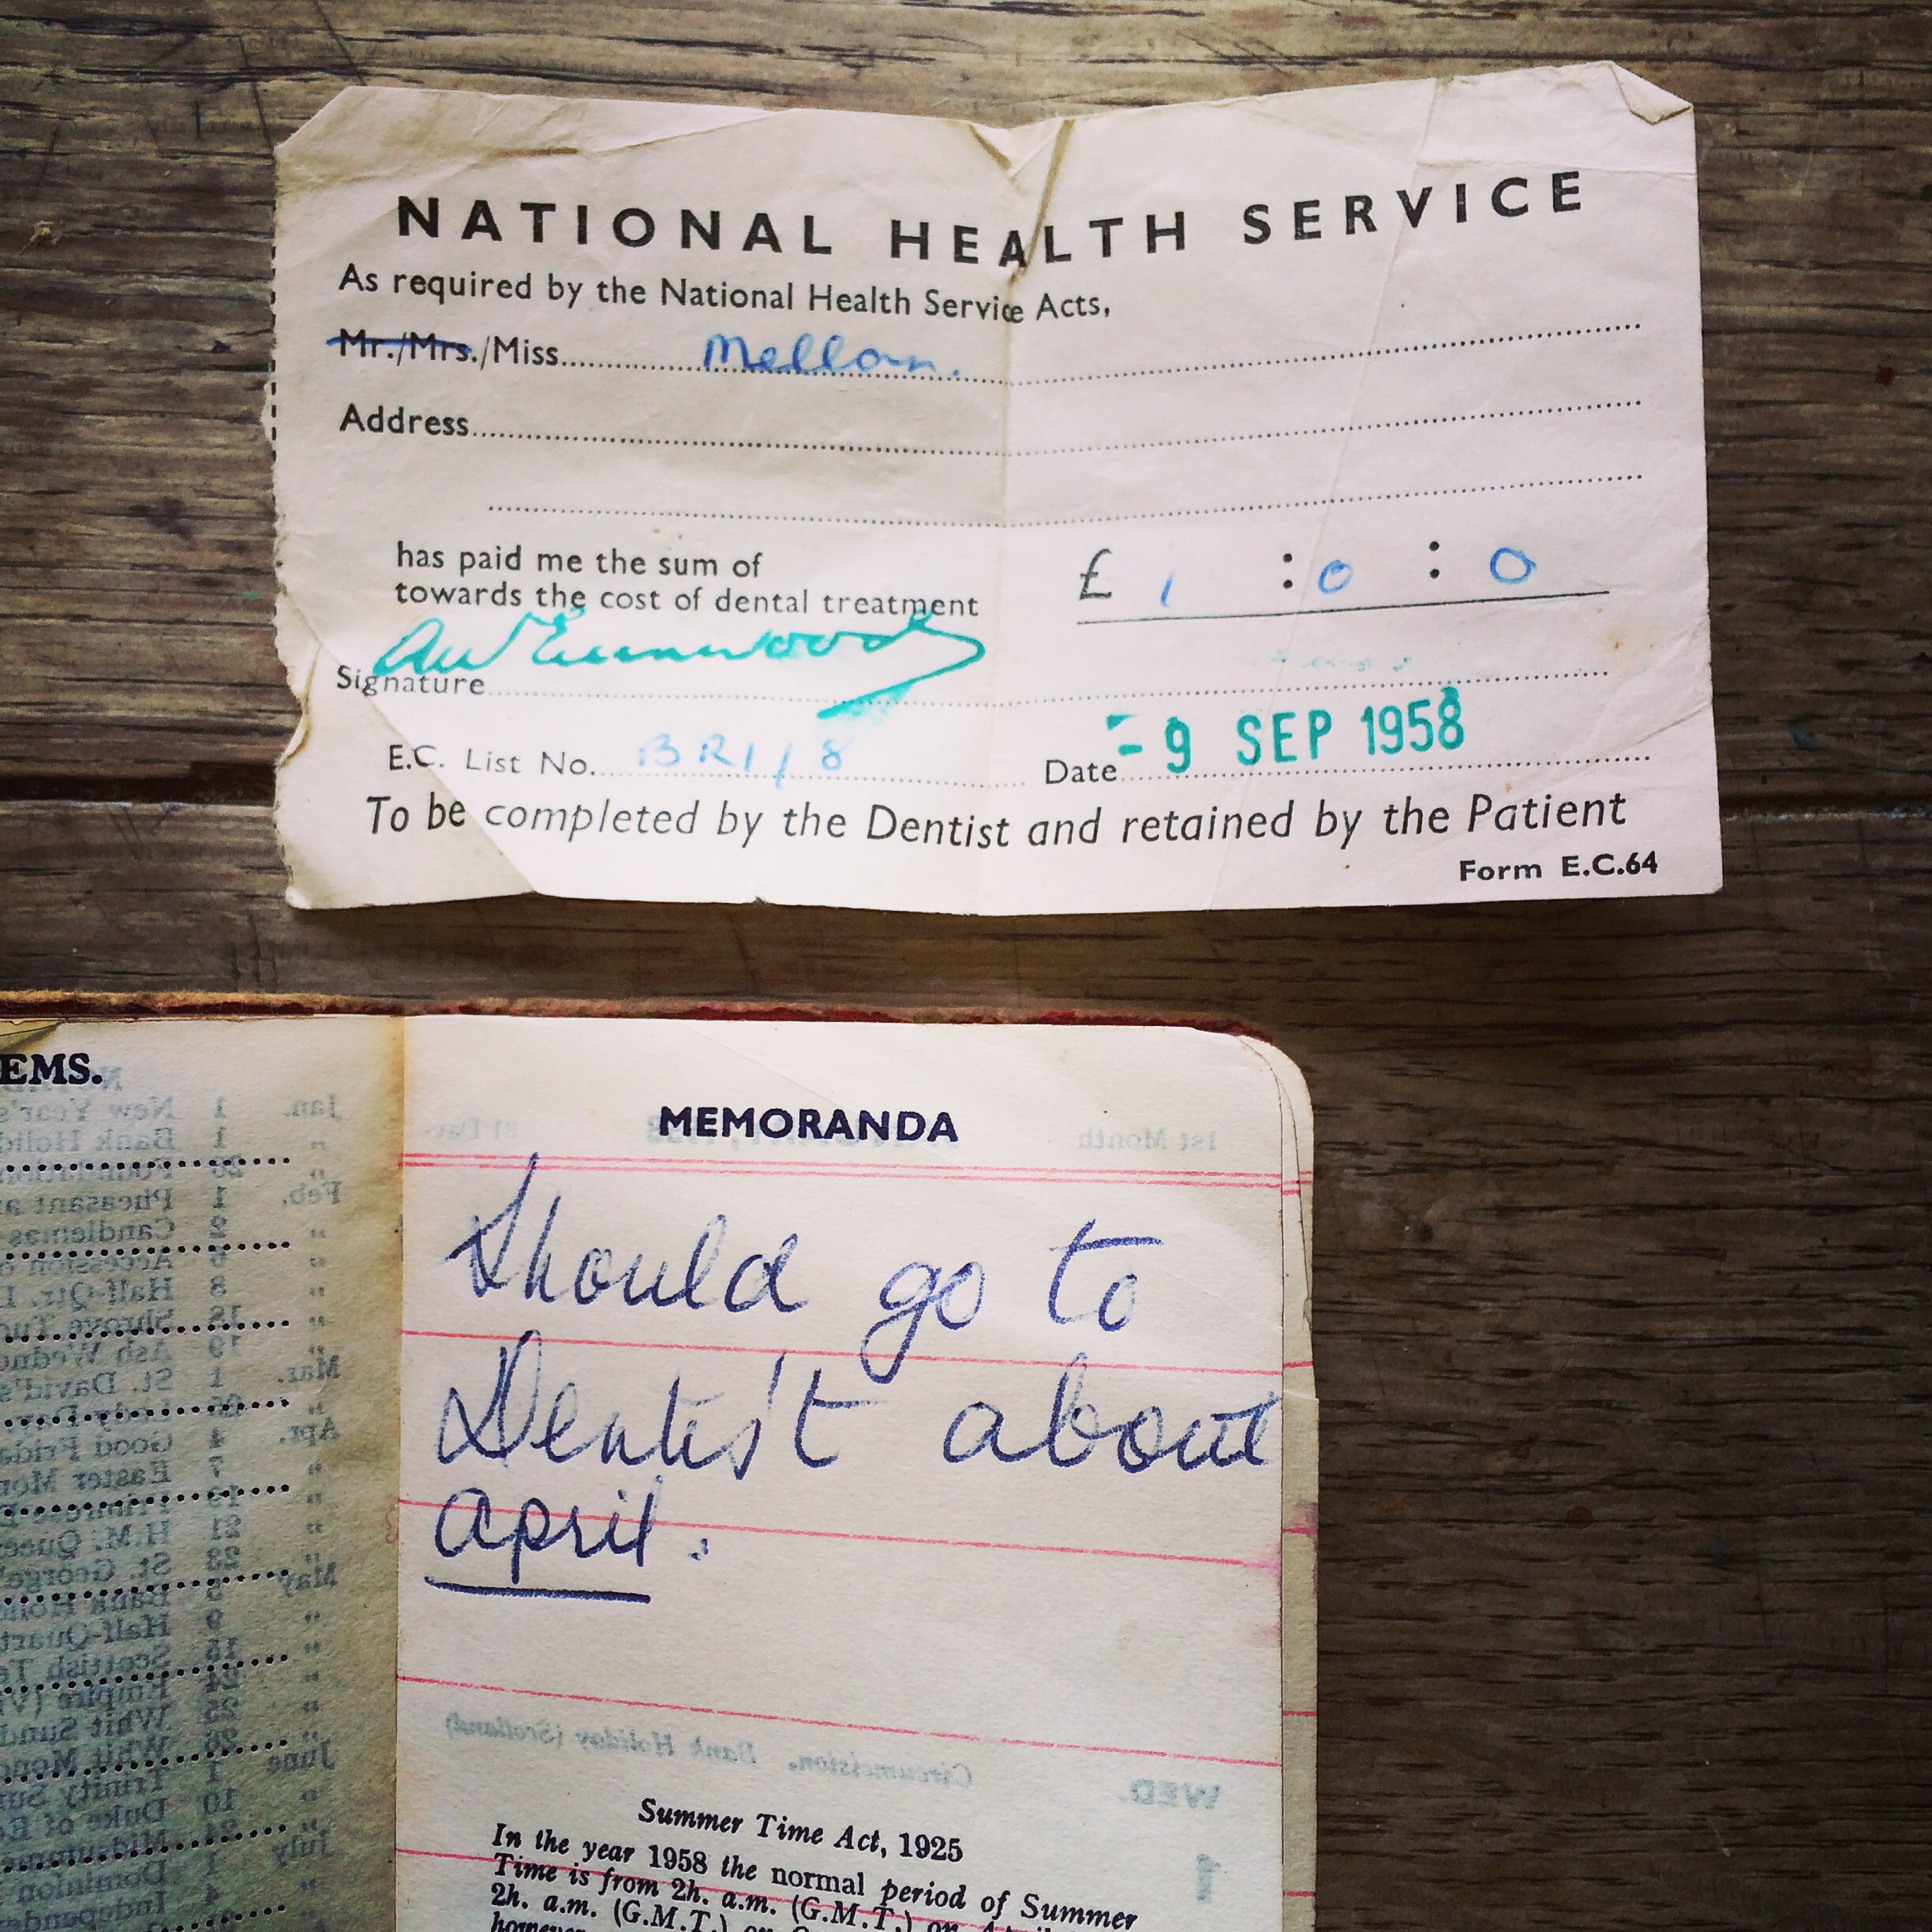 NATIONAL HEALTH SERVICE
As required by the National Health Service Acts,
Mr./Mrs./Miss
Address
has paid me the sum of
towards the cost of dental treatment
£ 1 : 0 : 0
Signature
E.C. List No. BRI/8 Date -9 SEP 1958
To be completed by the Dentist and retained by the Patient
Form E.C.64
EMS.
MEMORANDA
Should go to
Dentist about
april.
Summer Time Act, 1925
In the year 1958 the normal period of Summer
Time is from 2h. a.m. (G.M.T.) on
2h. a.m. (G.M.T.) on
however